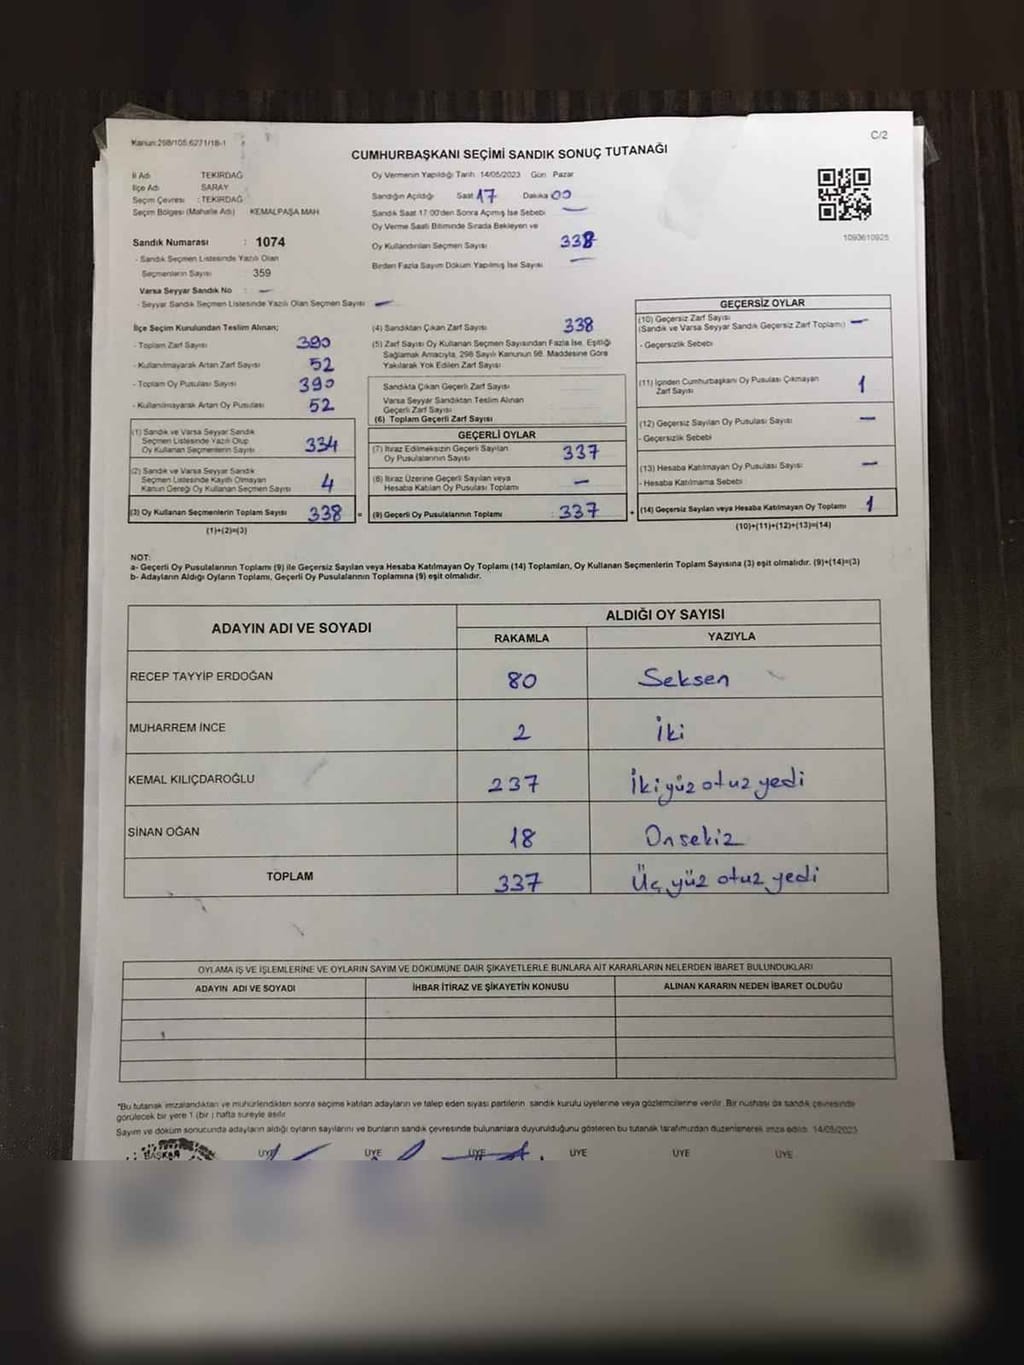 Kanun:298/105,6271/18-1
C/2
CUMHURBAŞKANI SEÇİMİ SANDIK SONUÇ TUTANAĞI
İl Adı TEKİRDAĞ
İlçe Adı SARAY
Seçim Çevresi : TEKİRDAĞ
Seçim Bölgesi (Mahalle Adı) KEMALPAŞA MAH
Sandık Numarası : 1074
- Sandık Seçmen Listesinde Yazılı Olan
Seçmenlerin Sayısı 359
Varsa Seyyar Sandık No : —
- Seyyar Sandık Seçmen Listesinde Yazılı Olan Seçmen Sayısı —
Oy Vermenin Yapıldığı Tarih 14/05/2023 Gün Pazar
Sandığın Açıldığı Saat 17 Dakika 00
Sandık Saat 17:00'den Sonra Açımış İse Sebebi —
Oy Verme Saati Bitiminde Sırada Bekleyen ve
Oy Kullandırılan Seçmen Sayısı 338
Birden Fazla Sayım Döküm Yapılmış İse Sayısı —
1093610925
İlçe Seçim Kurulundan Teslim Alınan;
- Toplam Zarf Sayısı 390
- Kullanılmayarak Artan Zarf Sayısı 52
- Toplam Oy Pusulası Sayısı 390
- Kullanılmayarak Artan Oy Pusulası 52
(1) Sandık ve Varsa Seyyar Sandık
Seçmen Listesinde Yazılı Olup
Oy Kullanan Seçmenlerin Sayısı 334
(2) Sandık ve Varsa Seyyar Sandık
Seçmen Listesinde Kayıtlı Olmayan
Kanun Gereği Oy Kullanan Seçmen Sayısı 4
(3) Oy Kullanan Seçmenlerin Toplam Sayısı 338 =
(1)+(2)=(3)
(4) Sandıktan Çıkan Zarf Sayısı 338
(5) Zarf Sayısı Oy Kullanan Seçmen Sayısından Fazla İse, Eşitliği
Sağlamak Amacıyla, 298 Sayılı Kanunun 98. Maddesine Göre
Yakılarak Yok Edilen Zarf Sayısı
Sandıkta Çıkan Geçerli Zarf Sayısı
Varsa Seyyar Sandıktan Teslim Alınan
Geçerli Zarf Sayısı
(6) Toplam Geçerli Zarf Sayısı
GEÇERLİ OYLAR
(7) İtiraz Edilmeksizin Geçerli Sayılan
Oy Pusulalarının Sayısı 337
(8) İtiraz Üzerine Geçerli Sayılan veya
Hesaba Katılan Oy Pusulası Toplamı —
(9) Geçerli Oy Pusulalarının Toplamı : 337 +
GEÇERSİZ OYLAR
(10) Geçersiz Zarf Sayısı
(Sandık ve Varsa Seyyar Sandık Geçersiz Zarf Toplamı) —
- Geçersizlik Sebebi
(11) İçinden Cumhurbaşkanı Oy Pusulası Çıkmayan
Zarf Sayısı 1
(12) Geçersiz Sayılan Oy Pusulası Sayısı —
- Geçersizlik Sebebi
(13) Hesaba Katılmayan Oy Pusulası Sayısı —
- Hesaba Katılmama Sebebi
(14) Geçersiz Sayılan veya Hesaba Katılmayan Oy Toplamı 1
(10)+(11)+(12)+(13)=(14)
NOT:
a- Geçerli Oy Pusulalarının Toplamı (9) ile Geçersiz Sayılan veya Hesaba Katılmayan Oy Toplamı (14) Toplamları, Oy Kullanan Seçmenlerin Toplam Sayısına (3) eşit olmalıdır. (9)+(14)=(3)
b- Adayların Aldığı Oyların Toplamı, Geçerli Oy Pusulalarının Toplamına (9) eşit olmalıdır.
ADAYIN ADI VE SOYADI
ALDIĞI OY SAYISI
RAKAMLA YAZIYLA
RECEP TAYYİP ERDOĞAN 80 Seksen
MUHARREM İNCE 2 İki
KEMAL KILIÇDAROĞLU 237 İkiyüz otuz yedi
SİNAN OĞAN 18 Onsekiz
TOPLAM 337 Üç yüz otuz yedi
OYLAMA İŞ VE İŞLEMLERİNE VE OYLARIN SAYIM VE DÖKÜMÜNE DAİR ŞİKAYETLERLE BUNLARA AİT KARARLARIN NELERDEN İBARET BULUNDUKLARI
ADAYIN ADI VE SOYADI İHBAR İTİRAZ VE ŞİKAYETİN KONUSU ALINAN KARARIN NEDEN İBARET OLDUĞU
*Bu tutanak imzalandıktan ve mühürlendikten sonra seçime katılan adayların ve talep eden siyasi partilerin sandık kurulu üyelerine veya gözlemcilerine verilir. Bir nüshası da sandık çevresinde
görülecek bir yere 1 (bir ) hafta süreyle asılır
Sayım ve döküm sonucunda adayların aldığı oyların sayılarını ve bunların sandık çevresinde bulunanlara duyurulduğunu gösteren bu tutanak tarafımızdan düzenlenerek imza edildi. 14/05/2023
BAŞKAN ÜYE ÜYE ÜYE ÜYE ÜYE ÜYE